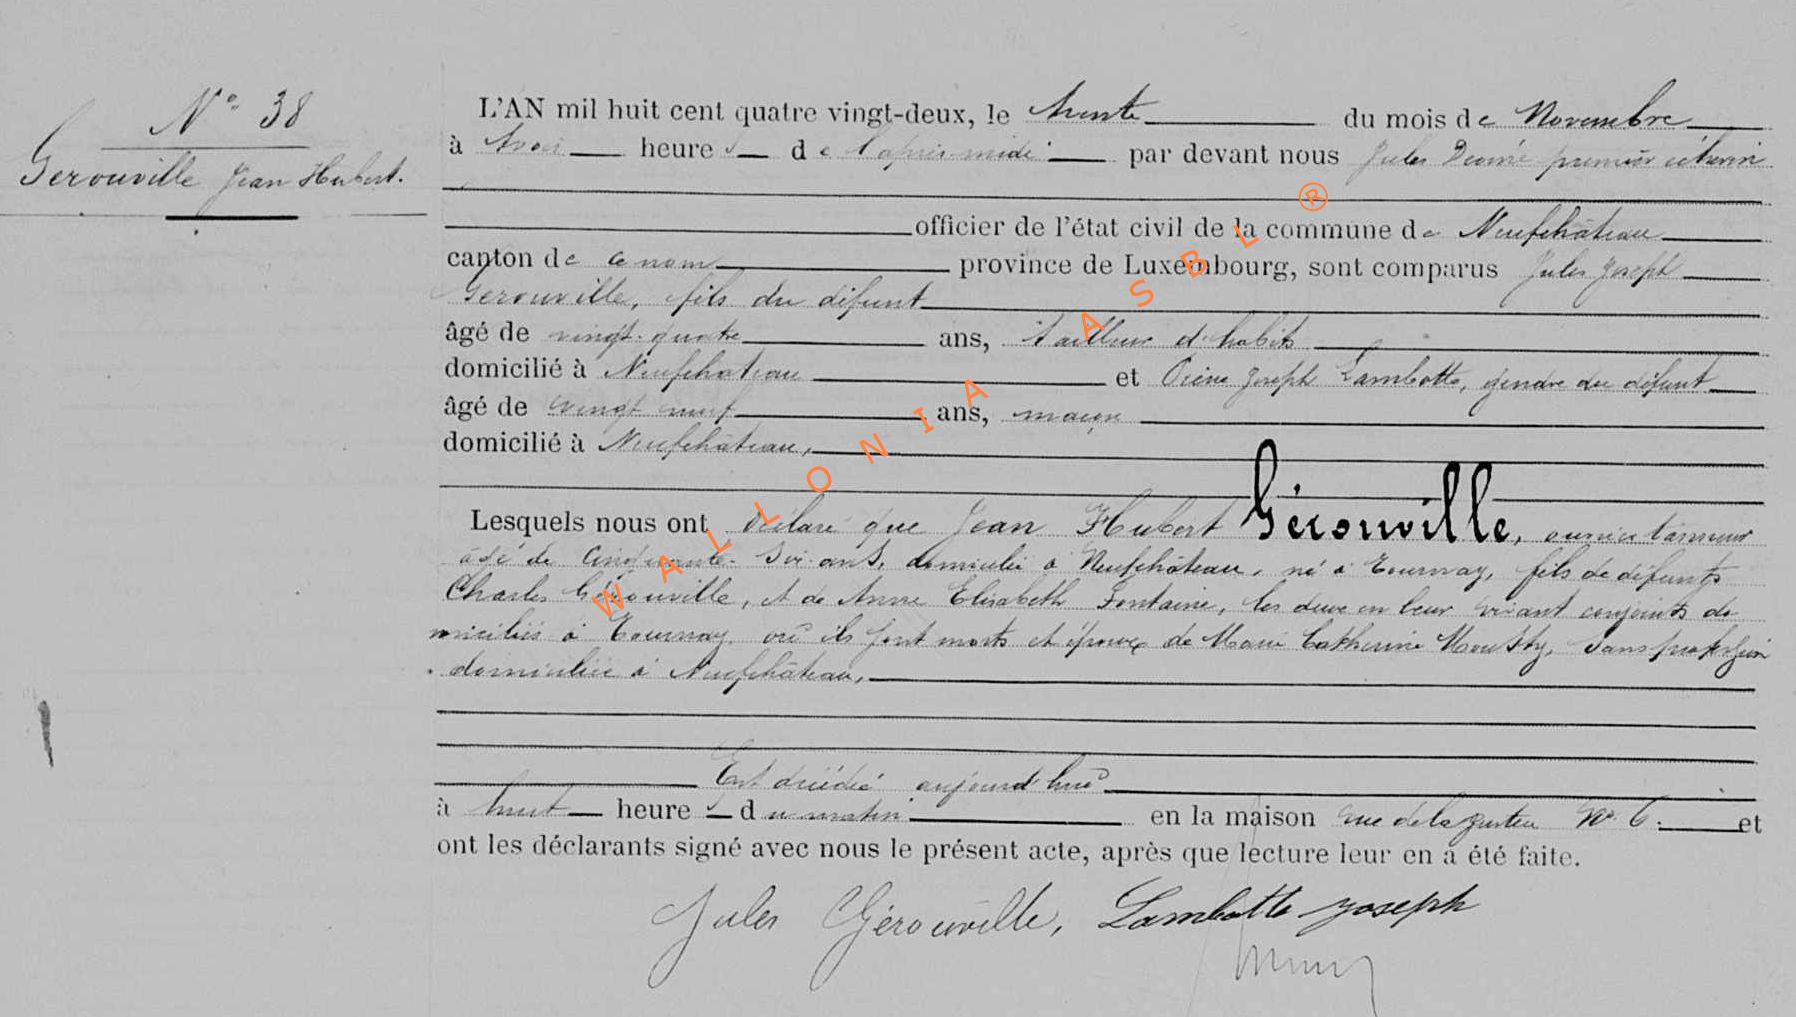 N° 38
Gerouville Jean Hubert.
L'AN mil huit cent quatre vingt-deux, le trente du mois de Novembre
à trois heures de l'après midi par devant nous Jules premier échevin
officier de l'état civil de la commune de Neufchâteau
canton de ce nom province de Luxembourg, sont comparus Jules Joseph
Gerouville, fils du défunt
âgé de vingt-quatre ans, tailleur d'habits
domicilié à Neufchateau et Joseph Lambotte, gendre du défunt
âgé de vingt neuf ans, maçon
domicilié à Neufchâteau,
Lesquels nous ont déclaré que Jean Hubert Gérouville, ouvrier tanneur
âgé de Cinquante-six ans, domicilié à Neufchâteau, né à Tournay, fils de défunts
Charles Gérouville, et de Anne Elisabeth Fontaine, les deux en leur vivant conjoints do
miciliés à Tournay où ils sont morts et époux de Marie Catherine sans profession
domiciliée à Neufchâteau,
Est décédé aujourd'hui
à huit heures du matin en la maison rue de la N° 6. et
ont les déclarants signé avec nous le présent acte, après que lecture leur en a été faite.
Jules Gérouville, Lambotte Joseph
WALLONIA ASBL ®